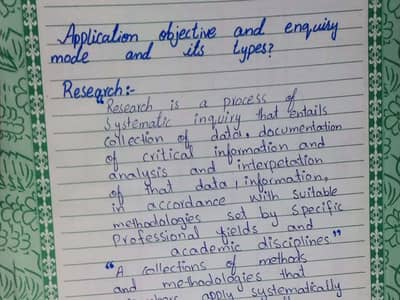 Application objective and enquiry
mode and its types?
Research:-
"Research is a process of
systematic inquiry that entails
collection of data, documentation
of critical information and
analysis and interpetation
of that data, information,
in accordance with suitable
methodologies set by specific
Professional fields and
academic disciplines"
"A collections of methods
and methodologies that
apply systematically